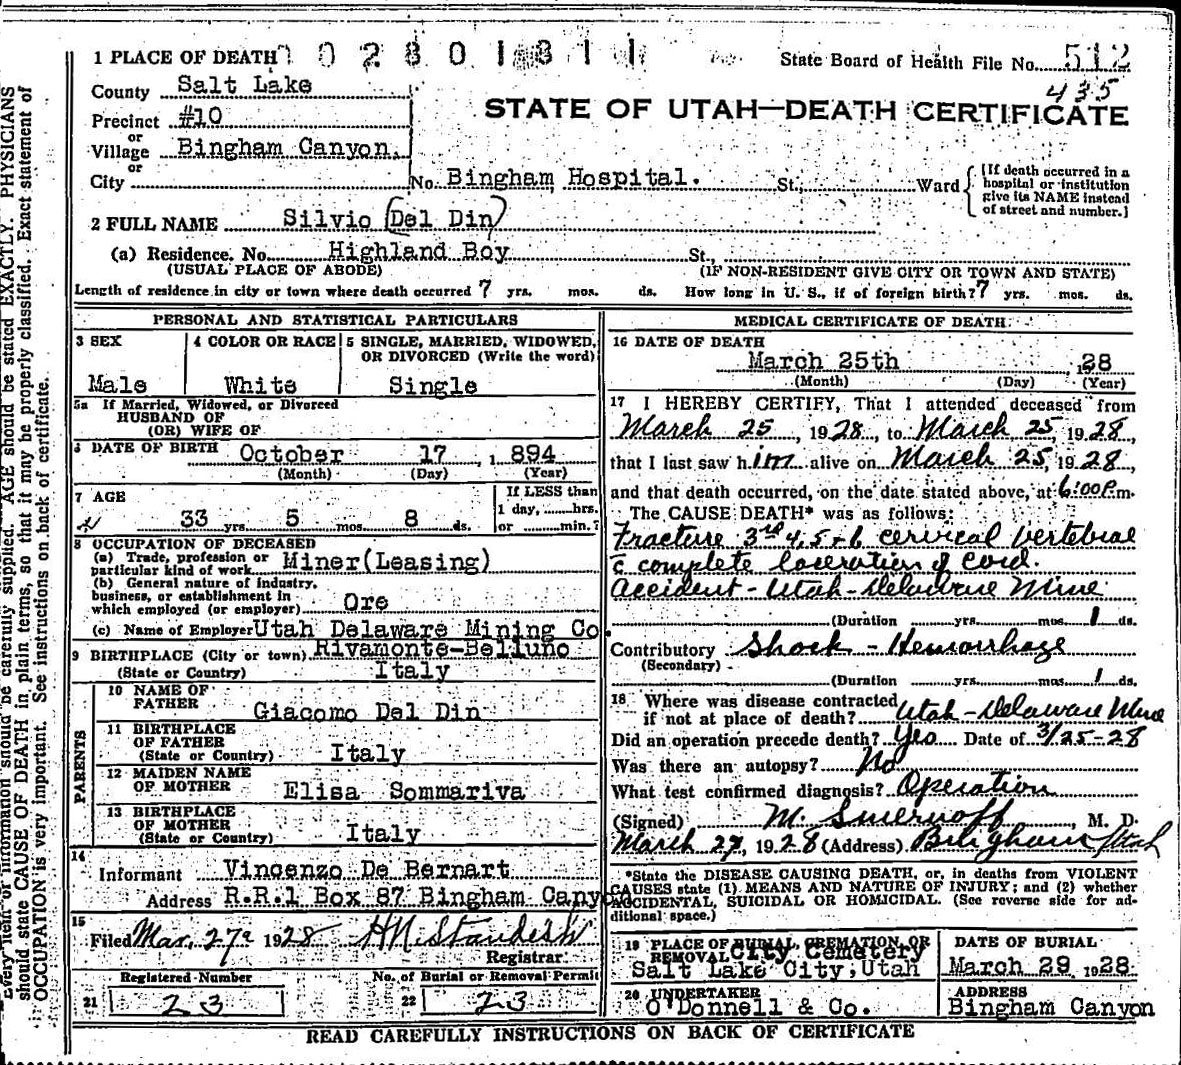 1 PLACE OF DEATH 0 2 8 0 1 3 1 1
State Board of Health File No. 512
435
County Salt Lake
STATE OF UTAH—DEATH CERTIFICATE
Precinct #10
or
Village Bingham Canyon.
or
City
No. Bingham Hospital. St., Ward
[If death occurred in a hospital or institution give its NAME instead of street and number.]
2 FULL NAME Silvio (Del Din)
(a) Residence. No. Highland Boy St.,
(USUAL PLACE OF ABODE) (IF NON-RESIDENT GIVE CITY OR TOWN AND STATE)
Length of residence in city or town where death occurred 7 yrs. mos. ds. How long in U. S., if of foreign birth? 7 yrs. mos. ds.
PERSONAL AND STATISTICAL PARTICULARS
3 SEX
Male
4 COLOR OR RACE
White
5 SINGLE, MARRIED, WIDOWED, OR DIVORCED (Write the word)
Single
5a If Married, Widowed, or Divorced
HUSBAND OF
(OR) WIFE OF
DATE OF BIRTH October 17, 1894
(Month) (Day) (Year)
7 AGE
33 yrs. 5 mos. 8 ds.
If LESS than
1 day, hrs.
or min.?
8 OCCUPATION OF DECEASED
(a) Trade, profession or
particular kind of work Miner(Leasing)
(b) General nature of industry,
business, or establishment in
which employed (or employer) Ore
(c) Name of Employer Utah Delaware Mining Co.
9 BIRTHPLACE (City or town) Rivamonte-Belluno
(State or Country) Italy
PARENTS
10 NAME OF
FATHER Giacomo Del Din
11 BIRTHPLACE
OF FATHER
(State or Country) Italy
12 MAIDEN NAME
OF MOTHER Elisa Sommariva
13 BIRTHPLACE
OF MOTHER
(State or Country) Italy
14
Informant Vincenzo De Bernart
Address R.R.1 Box 87 Bingham Canyo
15
Filed Mar. 27, 1928 H N Standish
Registrar
Registered Number
21 23
No. of Burial or Removal Permit
22 23
MEDICAL CERTIFICATE OF DEATH
16 DATE OF DEATH
March 25th, 1928
(Month) (Day) (Year)
17 I HEREBY CERTIFY, That I attended deceased from
March 25, 1928, to March 25, 1928,
that I last saw him alive on March 25, 1928,
and that death occurred, on the date stated above, at 6:00 P.m.
The CAUSE DEATH* was as follows:
Fracture 3rd 4, 5 + 6 cervical vertebral
c complete laceration of cord.
Accident - Utah-Delaware Mine
(Duration yrs. mos. 1 ds.
Contributory Shock - Hemorrhage
(Secondary)
(Duration yrs. mos. 1 ds.
18 Where was disease contracted
if not at place of death? Utah-Delaware Mine
Did an operation precede death? Yes Date of 3/25-28
Was there an autopsy? No
What test confirmed diagnosis? Operation
(Signed) M. Smernoff, M. D.
March 27, 1928 (Address) Bingham Utah
*State the DISEASE CAUSING DEATH, or, in deaths from VIOLENT
CAUSES state (1) MEANS AND NATURE OF INJURY; and (2) whether
ACCIDENTAL, SUICIDAL OR HOMICIDAL. (See reverse side for ad-
ditional space.)
19 PLACE OF BURIAL, CREMATION, OR
REMOVAL City Cemetery
Salt Lake City, Utah
DATE OF BURIAL
March 29 1928
20 UNDERTAKER
O'Donnell & Co.
ADDRESS
Bingham Canyon
READ CAREFULLY INSTRUCTIONS ON BACK OF CERTIFICATE
Every item of information should be carefully supplied. AGE should be stated EXACTLY. PHYSICIANS
should state CAUSE OF DEATH in plain terms, so that it may be properly classified. Exact statement of
OCCUPATION is very important. See instructions on back of certificate.